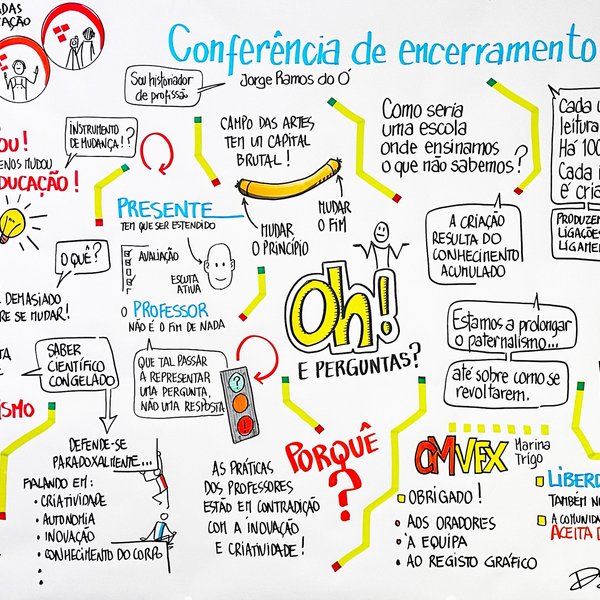 Conferência de encerramento
Sou historiador
de profissão
Jorge Ramos do Ó
INSTRUMENTO
DE MUDANÇA!
MUDOU
DUCAÇÃO!
CAMPO DAS ARTES
TEM UM CAPITAL
BRUTAL!
MUDAR
O PRINCÍPIO
MUDAR
O FIM
Como seria
uma escola
onde ensinamos
o que não sabemos?
Cada
leitura
Há 100
Cada
é cria
PRODUZEM
LIGAÇÕES
PRESENTE
TEM QUE SER ESTENDIDO
AVALIAÇÃO
ESCUTA
ATIVA
O PROFESSOR
NÃO É O FIM DE NADA
O QUÊ?
DEMASIADO
RE SE MUDAR!
SABER
CIENTÍFICO
CONGELADO
QUE TAL PASSAR
A REPRESENTAR
UMA PERGUNTA,
NÃO UMA RESPOSTA
?
!
Oh!
E PERGUNTAS?
A CRIAÇÃO
RESULTA DO
CONHECIMENTO
ACUMULADO
Estamos a prolongar
o paternalismo...
até sobre como se
revoltarem.
ISMO
DEFENDE-SE
PARADOXALMENTE...
FALANDO EM:
• CRIATIVIDADE
• AUTONOMIA
• INOVAÇÃO
• CONHECIMENTO DO CORPO
AS PRÁTICAS
DOS PROFESSORES
ESTÃO EM CONTRADIÇÃO
COM A INOVAÇÃO
E CRIATIVIDADE!
PORQUÊ
?
CMVFX
Marina
Trigo
OBRIGADO!
• AOS ORADORES
• À EQUIPA
• AO REGISTO GRÁFICO
LIBERD
TAMBÉM N
A COMUNIDA
ACEITA D